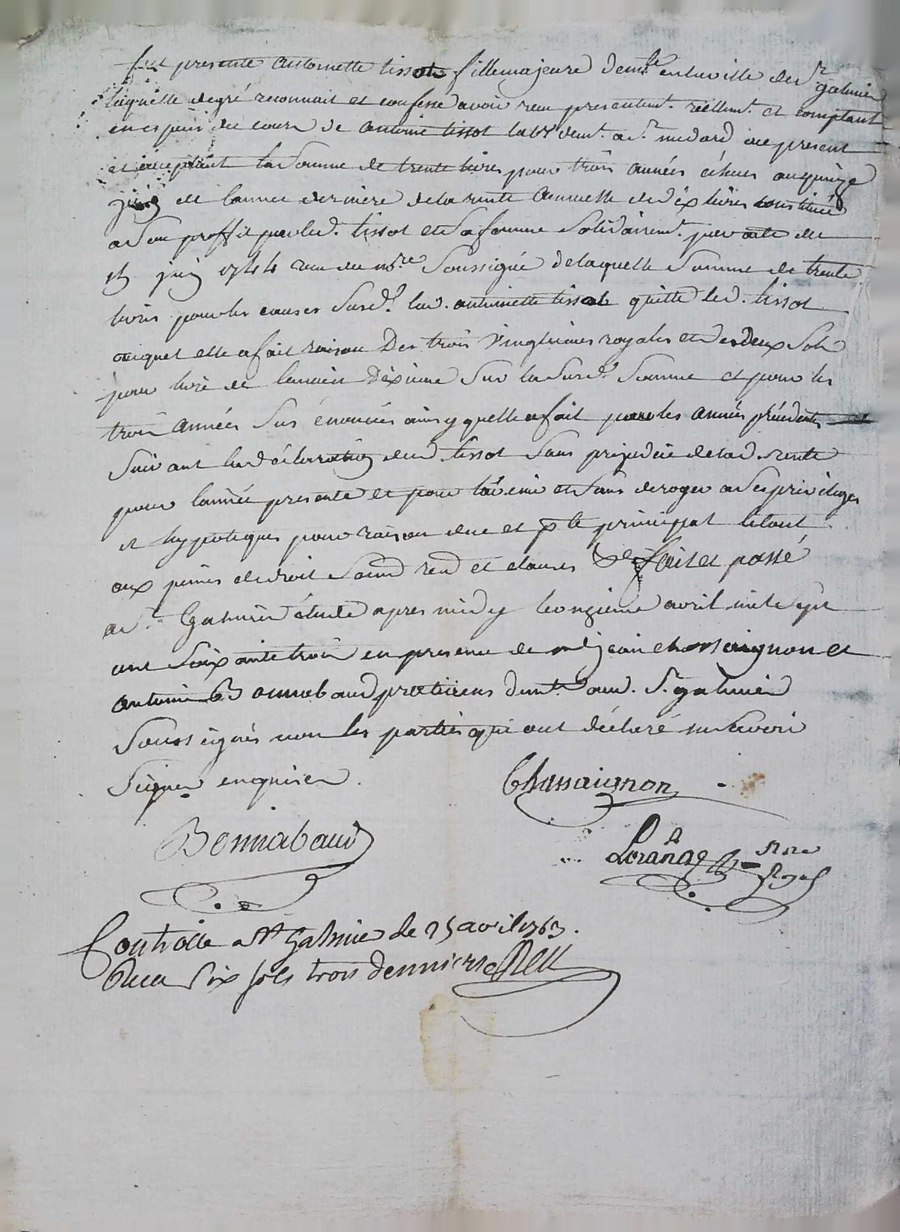 fut presente antoinette tissot fille majeure demte en la ville de st galmier
laquelle de gré reconnait et confesse avoir reçu presentemt. réellemt. et comptant
en especes du cours de antoine tissot labr demt. a st. medard icy present
et acceptant la somme de trente livres pour trois années échues au quinze
juin de lannée derniere de la rente annuelle de dix livres constituée
a son proffit par led. tissot et sa femme solidairemt. par acte du
15 juin 1744 reçu du nre. soussigné de laquelle somme de trente
livres pour les causes susd. lad. antoinette tissot quitte led. tissot
auquel elle a fait raison des trois vingtiemes royales et des deux sols
pour livre de lancien dixieme sur la susd. somme et pour les
trois années sus énoncées ainsy quelle a fait pour les années précédentes
suivant la déclaration dud. tissot sans préjudice de lad. rente
pour lannée presente et pour lavenir et sans deroger a ses privileges
et hypoteques pour raison de ce et pr le principal le tout
aux peines de droit et clauses fait et passé
a st. galmier étude apres midy le onzieme avril mil sept
cent soixante trois en presence de jean chassaignon et
antoine Bonnabaud praticiens demt. aud. st. galmier
soussignés non les parties qui ont déclaré ne savoir
signer enquises.
Chassaignon
Bonnabaud
nre
royal
Controlle a st Galmier le 25 avril 1763.
Reçu six sols trois denniers